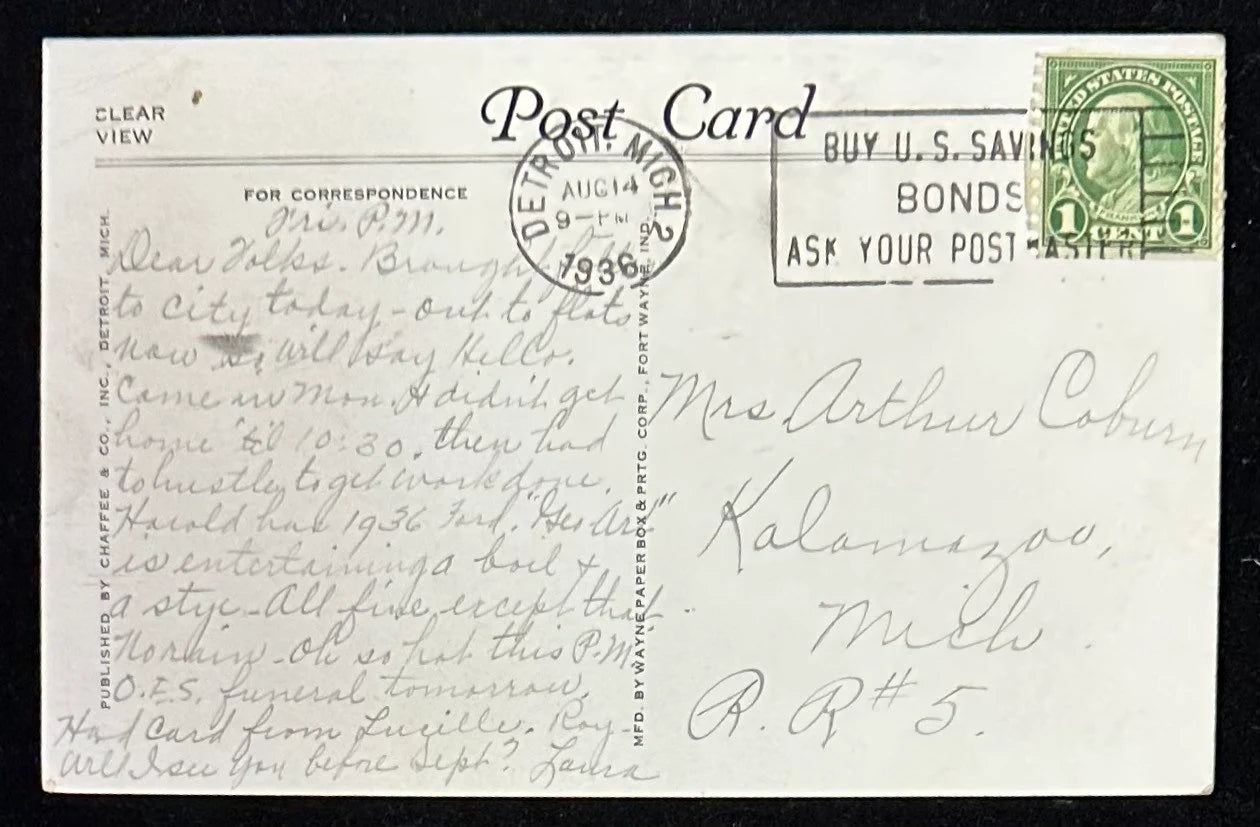 CLEAR
VIEW
Post Card
FOR CORRESPONDENCE
DETROIT, MICH. 2
AUG 14
9-PM
1936
BUY U.S. SAVINGS
BONDS
ASK YOUR POSTMASTER
UNITED STATES POSTAGE
FRANKLIN
1 CENT 1
PUBLISHED BY CHAFFEE & CO., INC., DETROIT, MICH.
MFD. BY WAYNE PAPER BOX & PRTG. CORP., FORT WAYNE, IND.
Fri. P.M.
Dear Folks. Brought
to city today - out to flats
now so will say Hello.
Came in Mon. & didn't get
home 'til 10:30, then had
to hustle to get work done.
Harold has 1936 Ford. "Geo Art"
is entertaining a boil &
a stye - All fine except that.
No rain - Oh so hot this P.M.
O.E.S. funeral tomorrow.
Had Card from Lucille. Roy -
Will I see you before Sept? Laura
Mrs Arthur Coburn
Kalamazoo,
Mich.
R. R # 5.